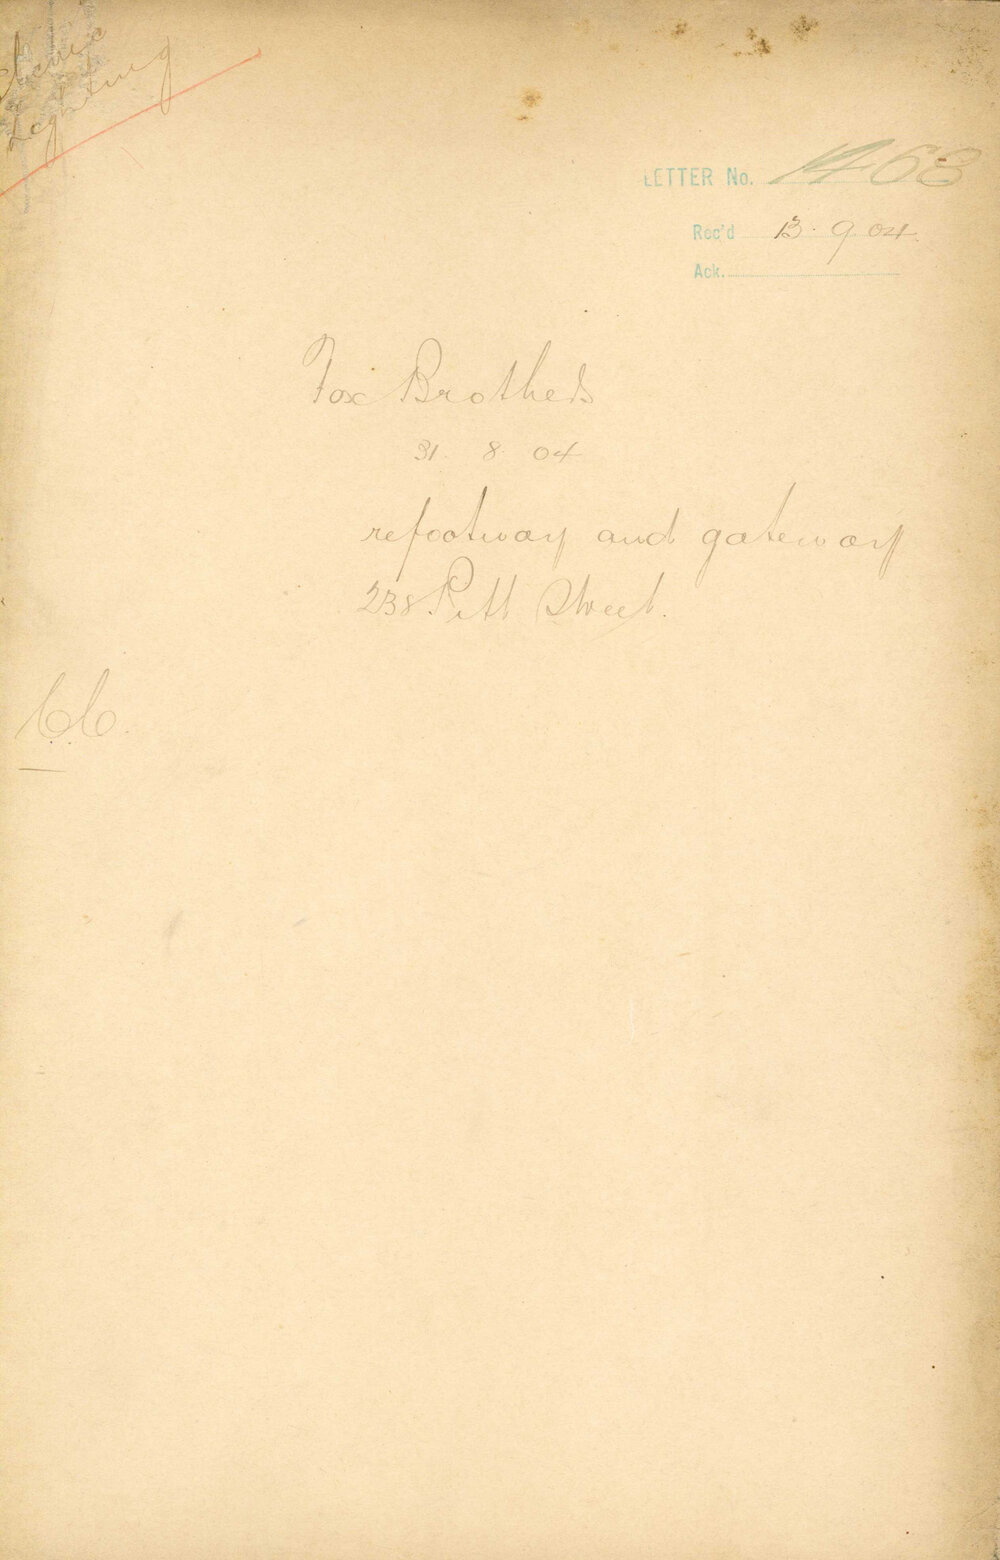 Electric
Lighting
LETTER No. 1468
Rec'd 13. 9. 04
Ack.
Fox Brothers
31. 8. 04
re footway and gateway
238 Pitt Street.